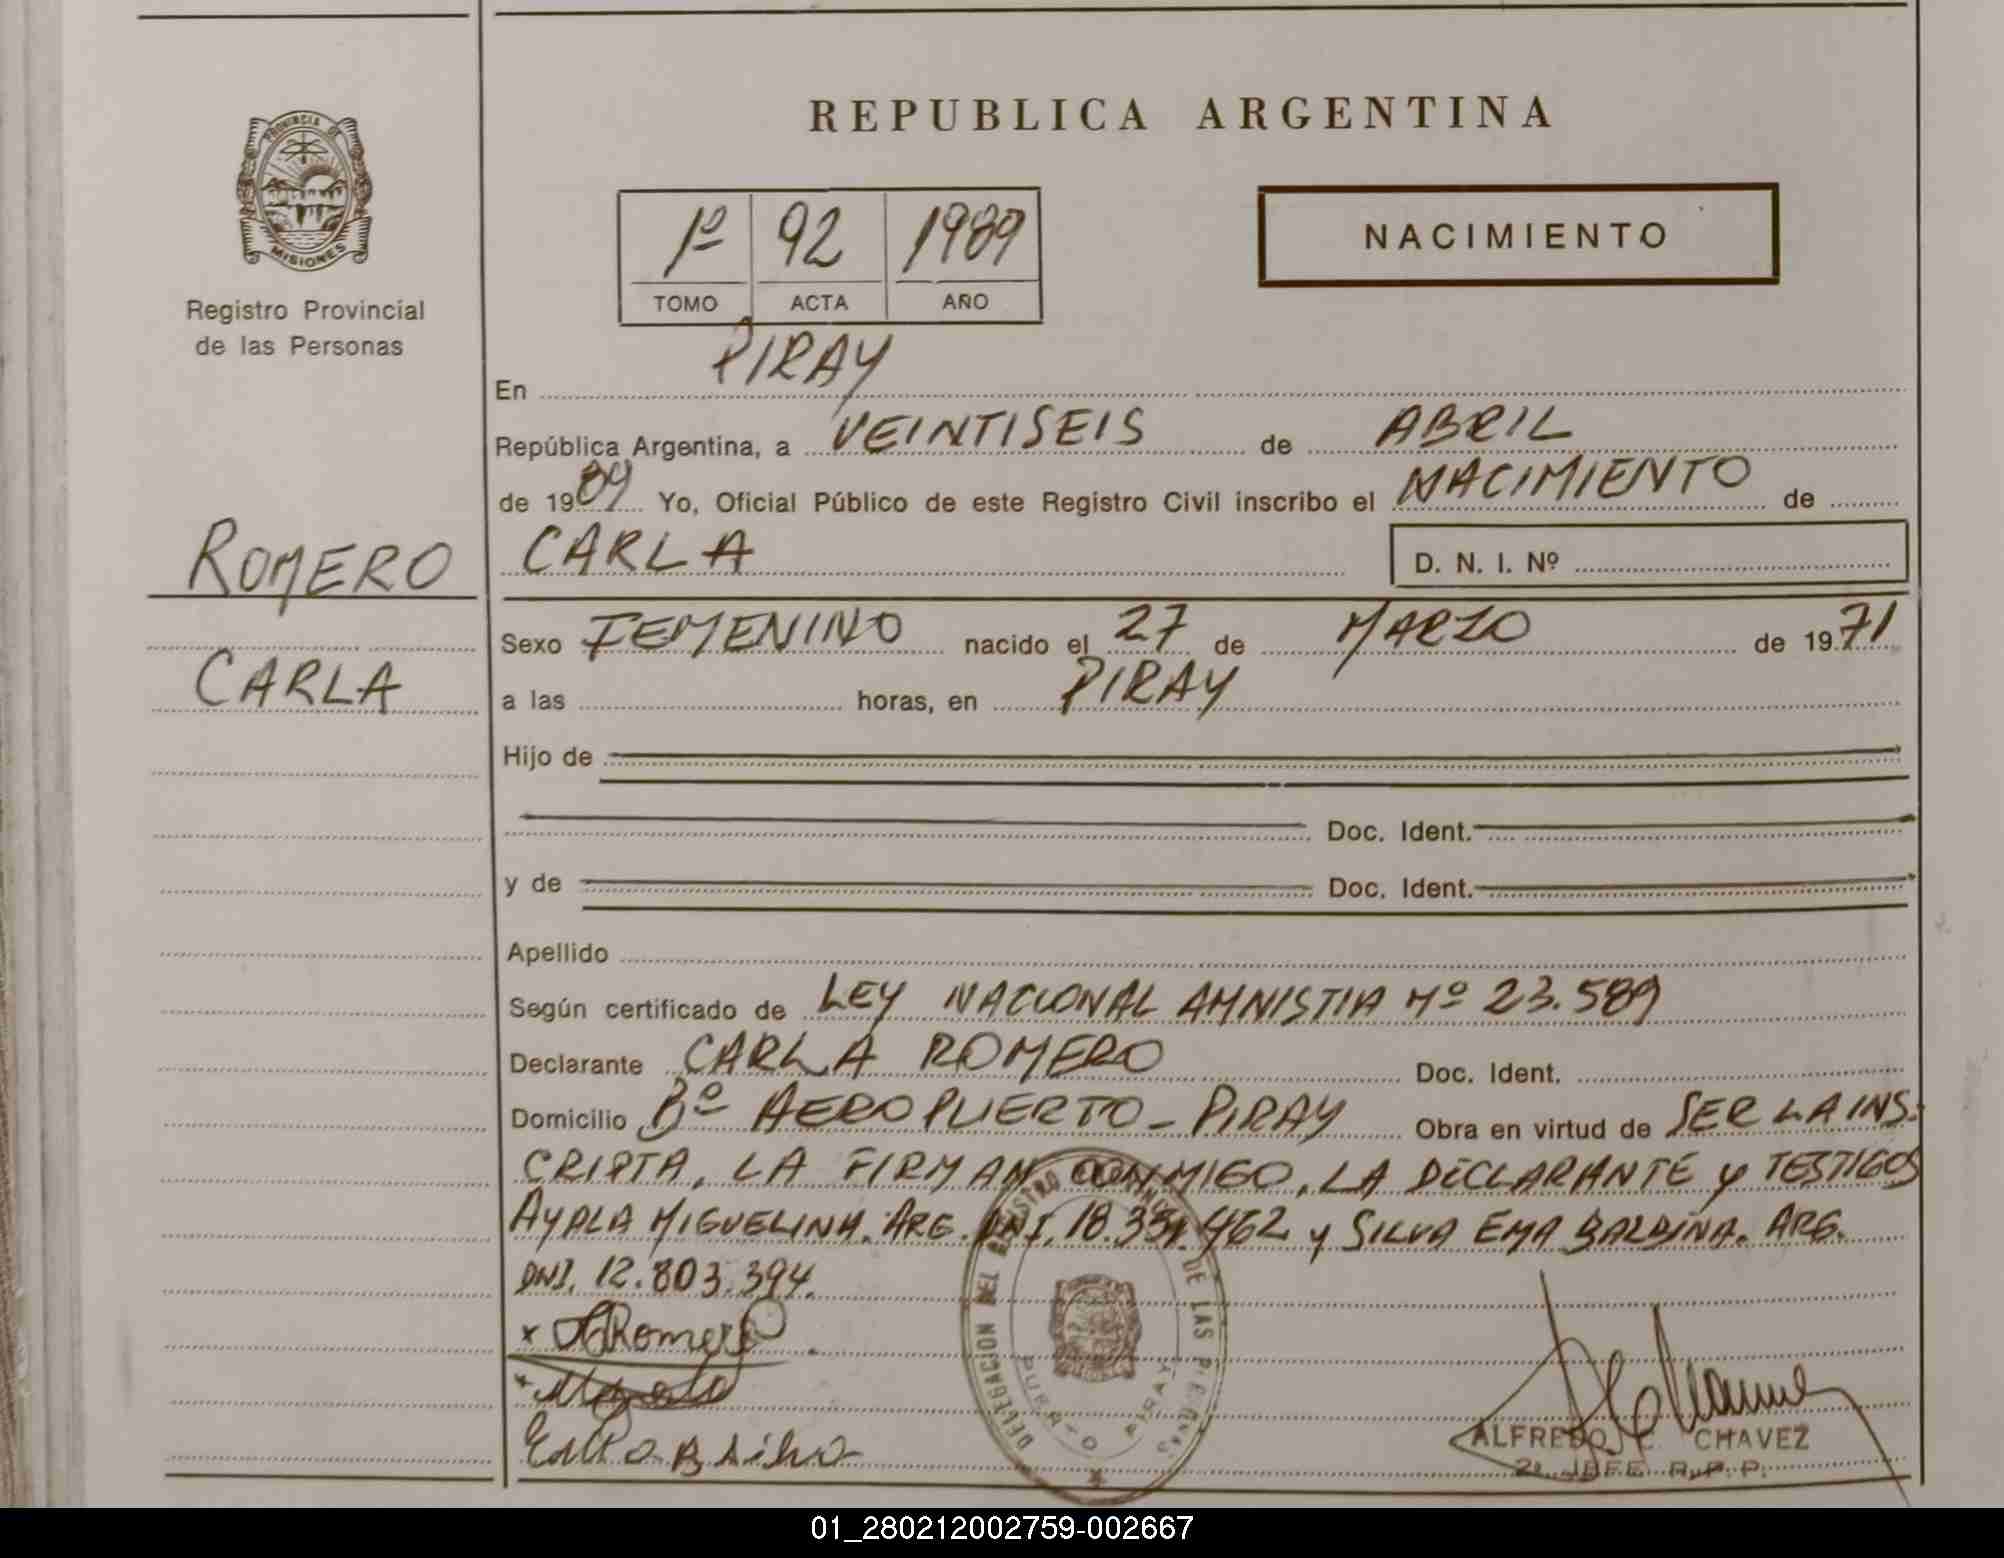 PROVINCIA DE
MISIONES
Registro Provincial
de las Personas
ROMERO
CARLA
REPUBLICA ARGENTINA
1º 92 1989
TOMO ACTA AÑO
NACIMIENTO
En PIRAY
República Argentina, a VEINTISEIS de ABRIL
de 1989 Yo, Oficial Público de este Registro Civil inscribo el NACIMIENTO de
CARLA D. N. I. Nº
Sexo FEMENINO nacido el 27 de MARZO de 1971
a las horas, en PIRAY
Hijo de
Doc. Ident.
y de Doc. Ident.
Apellido
Según certificado de LEY NACIONAL AMNISTIA Nº 23.589
Declarante CARLA ROMERO Doc. Ident.
Domicilio Bº AEROPUERTO - PIRAY Obra en virtud de SER LA INS-
CRIPTA, LA FIRMAN CONMIGO, LA DECLARANTE y TESTIGOS
AYALA MIGUELINA. ARG. DNI. 18.331.462 y SILVA EMA BALBINA. ARG.
DNI. 12.803.394.
x Romero
DELEGACION DEL REGISTRO DE LAS PERSONAS
PUERTO PIRAY
ALFREDO C. CHAVEZ
2º JEFE R.P.P.
01_280212002759-002667